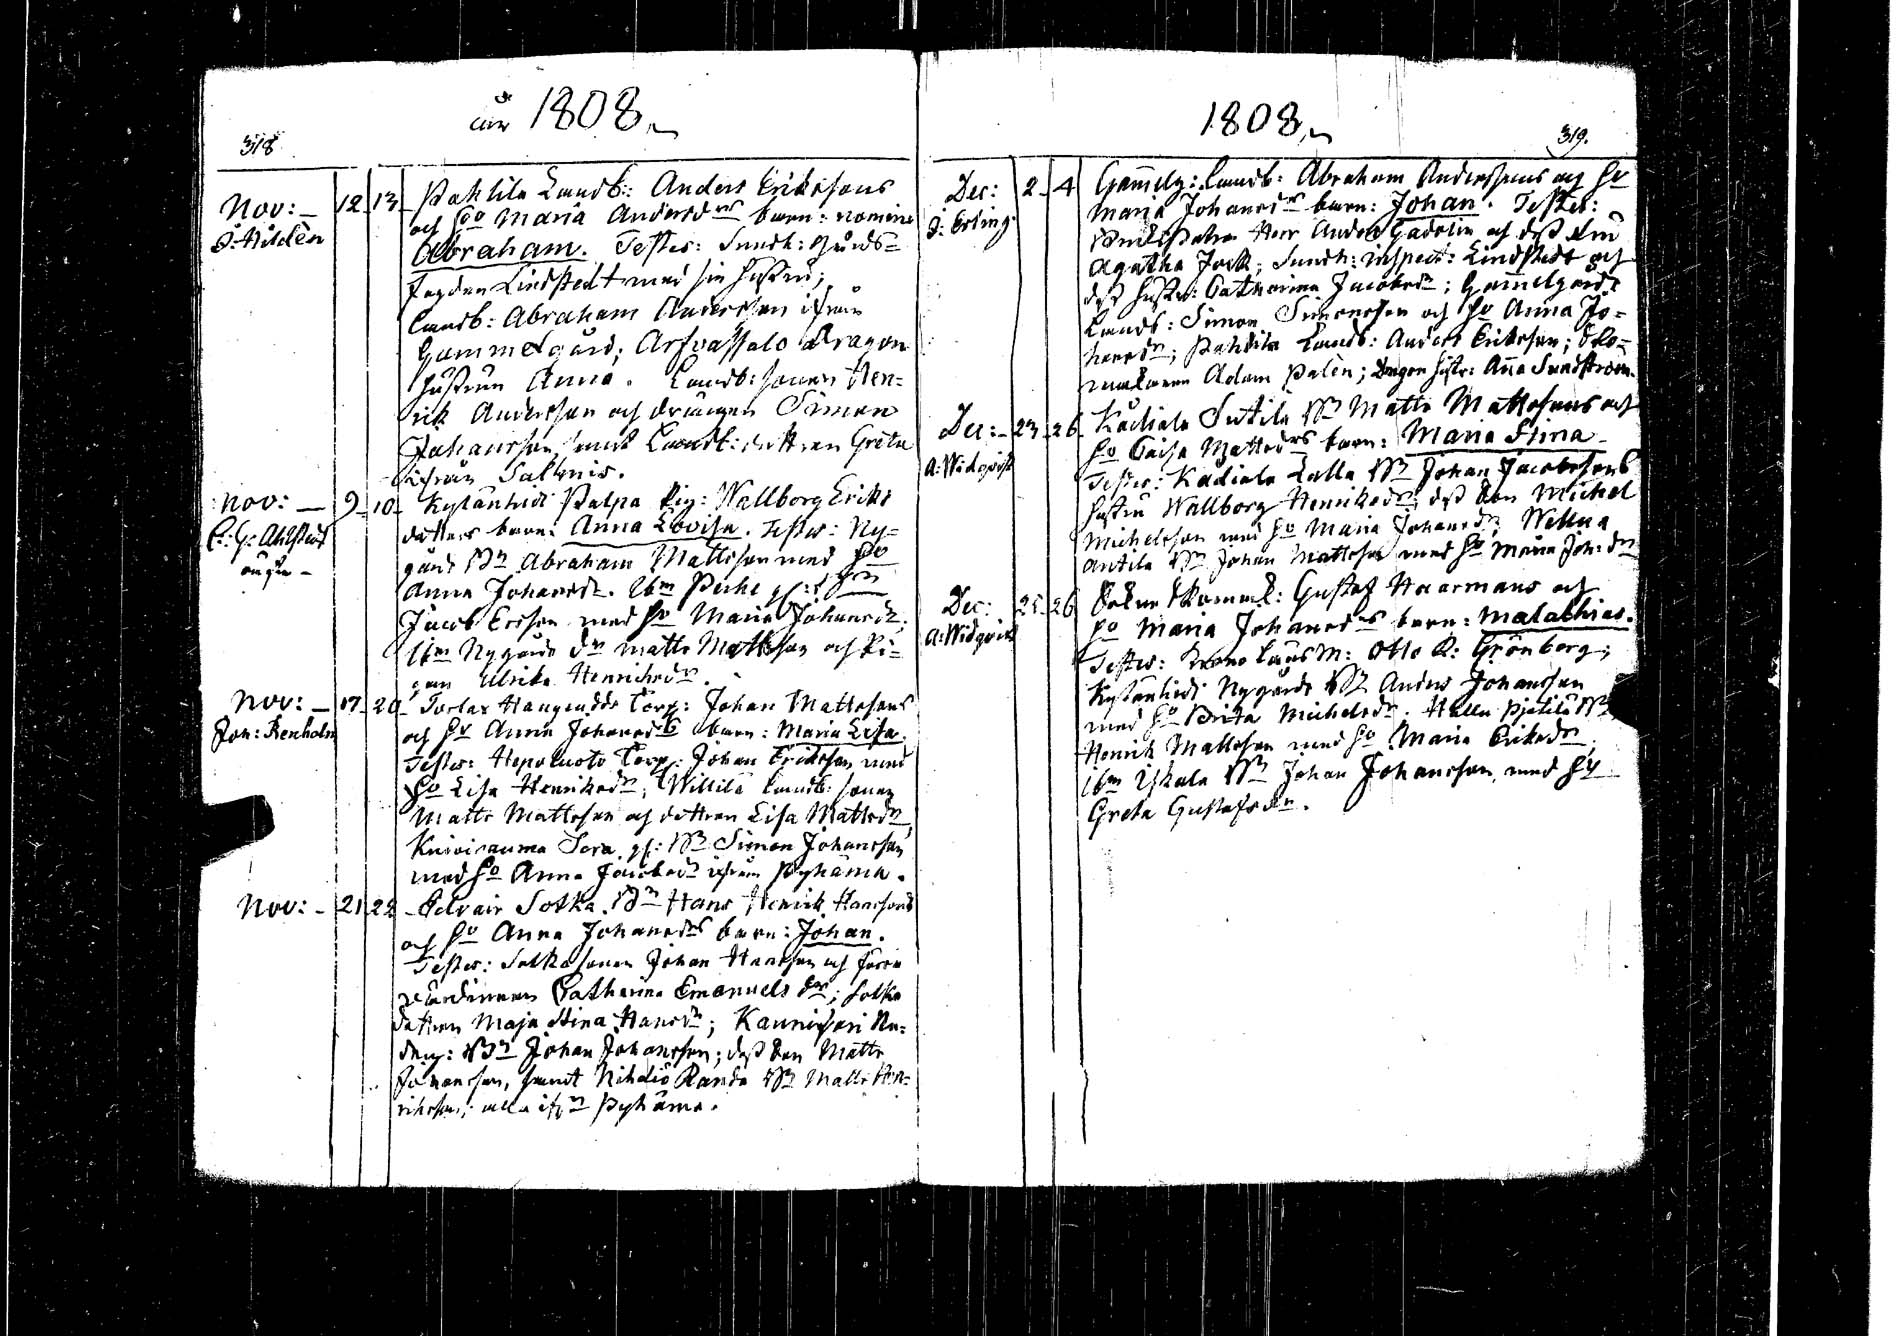 år 1808
318
Nov: 12 13 Pahlila Landb: Anders Erikssons
J: Hildén och ho Maria Andersdrs barn: nomine
Abraham. Testes: Sundh: Gårds=
fogden Lindstedt med sin hustru;
Landb: Abraham Andersson ifrån
Gammelgård; Arfvassalo Dragon
hustrun Anna. Landb: sonen Hen=
rik Andersson och drängen Simon
Johansson, samt Landb: dottren Greta
ifrån Salmis.
Nov: 9 10 Kylänhidi Palpa Pig: Wallborg Eriks
dotters barn: Anna Lovisa. Testes: Ny=
gård Bn Abraham Mattsson med ho
Anna Johansdr. Ibm
Jacob Ersson med ho Maria Johansdr.
ibm Nygårds dn Matts Mattsson och Pi=
gan Ulrika Henrichsdr.
Nov: 17 20 Torlax Haugendds Torp: Johan Mattssons
Joh: Renholm och ho Anna Johansdrs barn: Maria Lisa.
Testes: Torp: Johan Eriksson med
ho Lisa Henriksdr; Willilä Landb: sonen
Matts Mattsson och dottren Lisa Mattsdr,
Knivirauma Bn Simon Johansson
med ho Anna Jacobsdr ifrån Pyhäma.
Nov: 21 22 Sotka Bn Hans Henrik Hanssons
och ho Anna Johansdrs barn: Johan.
Testes: Sotka sonen Johan Hansson och
värdinnan Catharina Emanuels dr; Sotka
dottren Maja Stina Hansdr; Kaunisari
Bn Johan Johansson; dess Son Matts
Johansson, samt Nihdiö Randa Bn Matts Hen=
riksson; alla ifrn Pyhäma.
1808
319.
Dec: 2 4 Gam̄elg: Landb: Abraham Anderssons och ho
J: Erling Maria Johansdrs barn: Johan. Testes:
Herr Anders Gadolin och dess Fru
Agatha Jock; Sundh: inspect: Lindstedt och
dess hustru: Catharina Jacobsdr; Gam̄elgårds
Landb: Simon Simonsson och ho Anna Jo=
hansdr; Pahlila Landb: Anders Eriksson; Sko=
makaren Adam Palén; Dragon hustr: An̄a Sundström.
Dec: 23 26 Kadiala Sutila Bn Matts Mattssons och
A: Widqvist ho Caisa Mattsdrs barn: Maria Stina
Testes: Kadiala Lalla Bn Johan Jacobssons
hustru Wallborg Henriksdr; dess Son Michel
Michelsson med ho Maria Johansdr; Wellua
Antila Bn Johan Mattsson med ho Maria Joh: dr
Dec: 25 26 Gustaf Haarmans och
A: Widqvist ho Maria Johansdrs barn: Malachias.
Testes: Krono Läns M: Otto R: Grönberg;
Kylänhidi Nygårds Bn Anders Johansson
med ho Brita Michelsdr. Hallu Pietilä Bn
Henrik Mattsson med ho Maria Eriksdr;
ibm Yskala Bn Johan Johansson, med ho
Greta Gustafsdr.